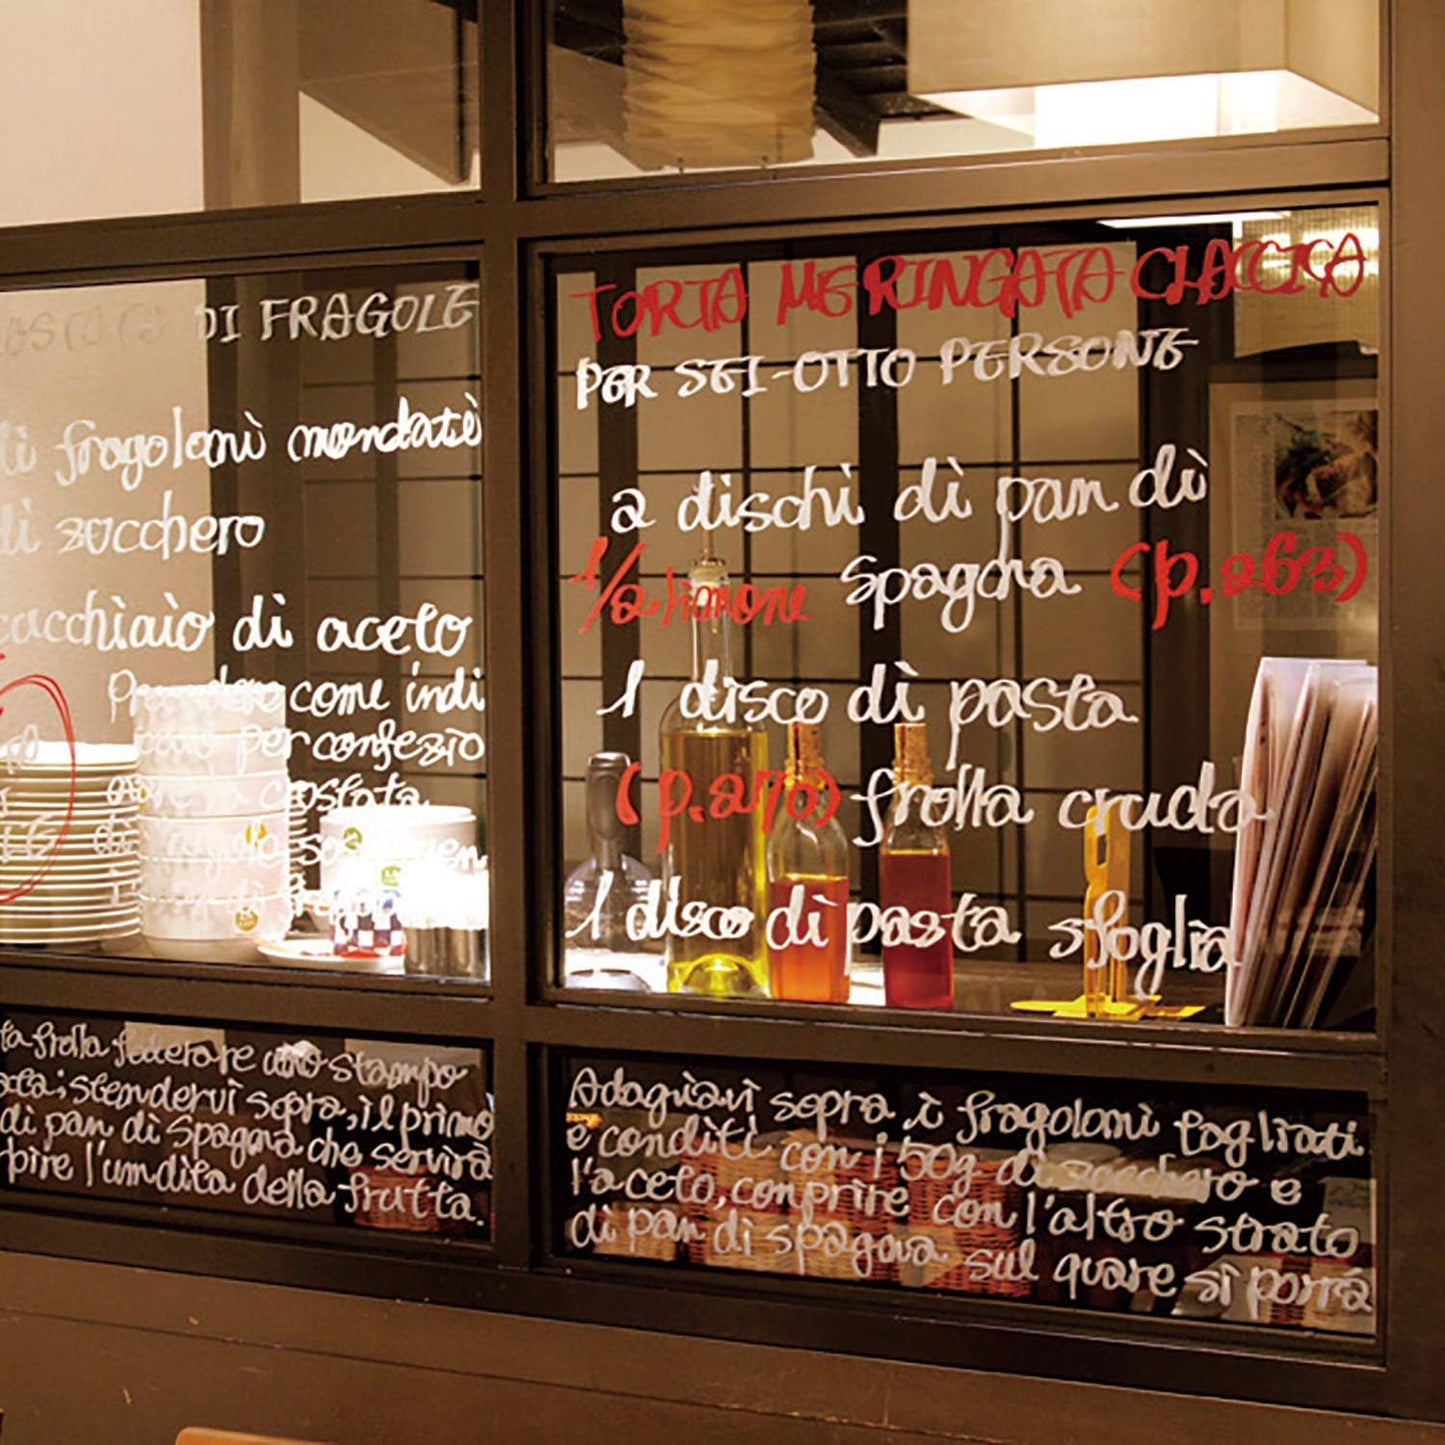 DI FRAGOLE
di fragolonì mondatì
di zucchero
cucchìaìo dì aceto
come indi
per confezio
crostata
TORTA MERINGATA CLACCICA
PER SEI-OTTO PERSONE
2 dischì dì pan dì
1/2 limone spagna (p.263)
1 disco dì pasta
(p.270) frolla cruda
1 disco dì pasta sfoglia
ta frolla federare uno stampo
stendervi sopra, il primo
di pan di Spagna che servirà
l'umdita della frutta.
Adagiarvi sopra i fragoloni tagliati
e conditi con i 50g di zucchero e
l'aceto, conprire con l'altro strato
di pan di spagna sul quare si porrà